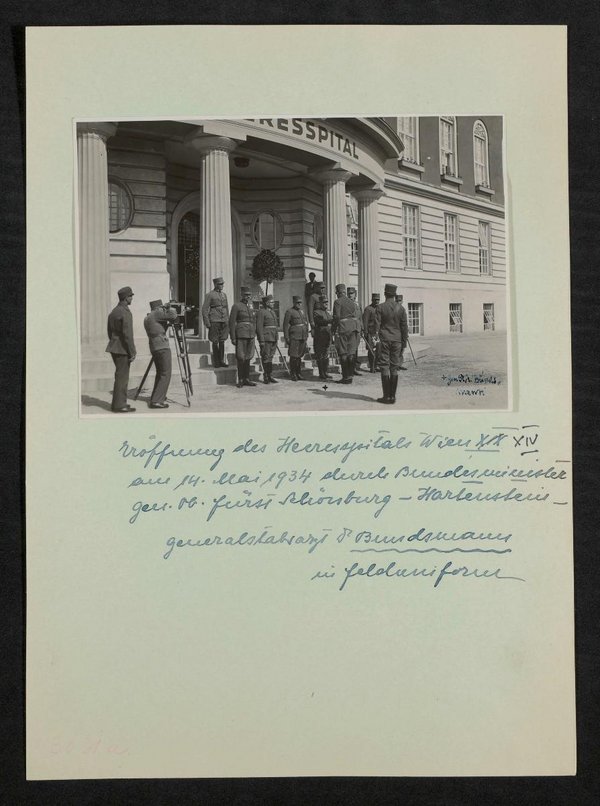 ERESSPITAL
+ Gen. St. A. Bunds-
mann
+
Eröffnung des Heeresspitals Wien XIX XIV
am 14. Mai 1934 durch Bundesminister
Gen. Ob. Fürst Schönburg – Hartenstein –
Generalstabsarzt Dr Bundsmann
in Felduniform